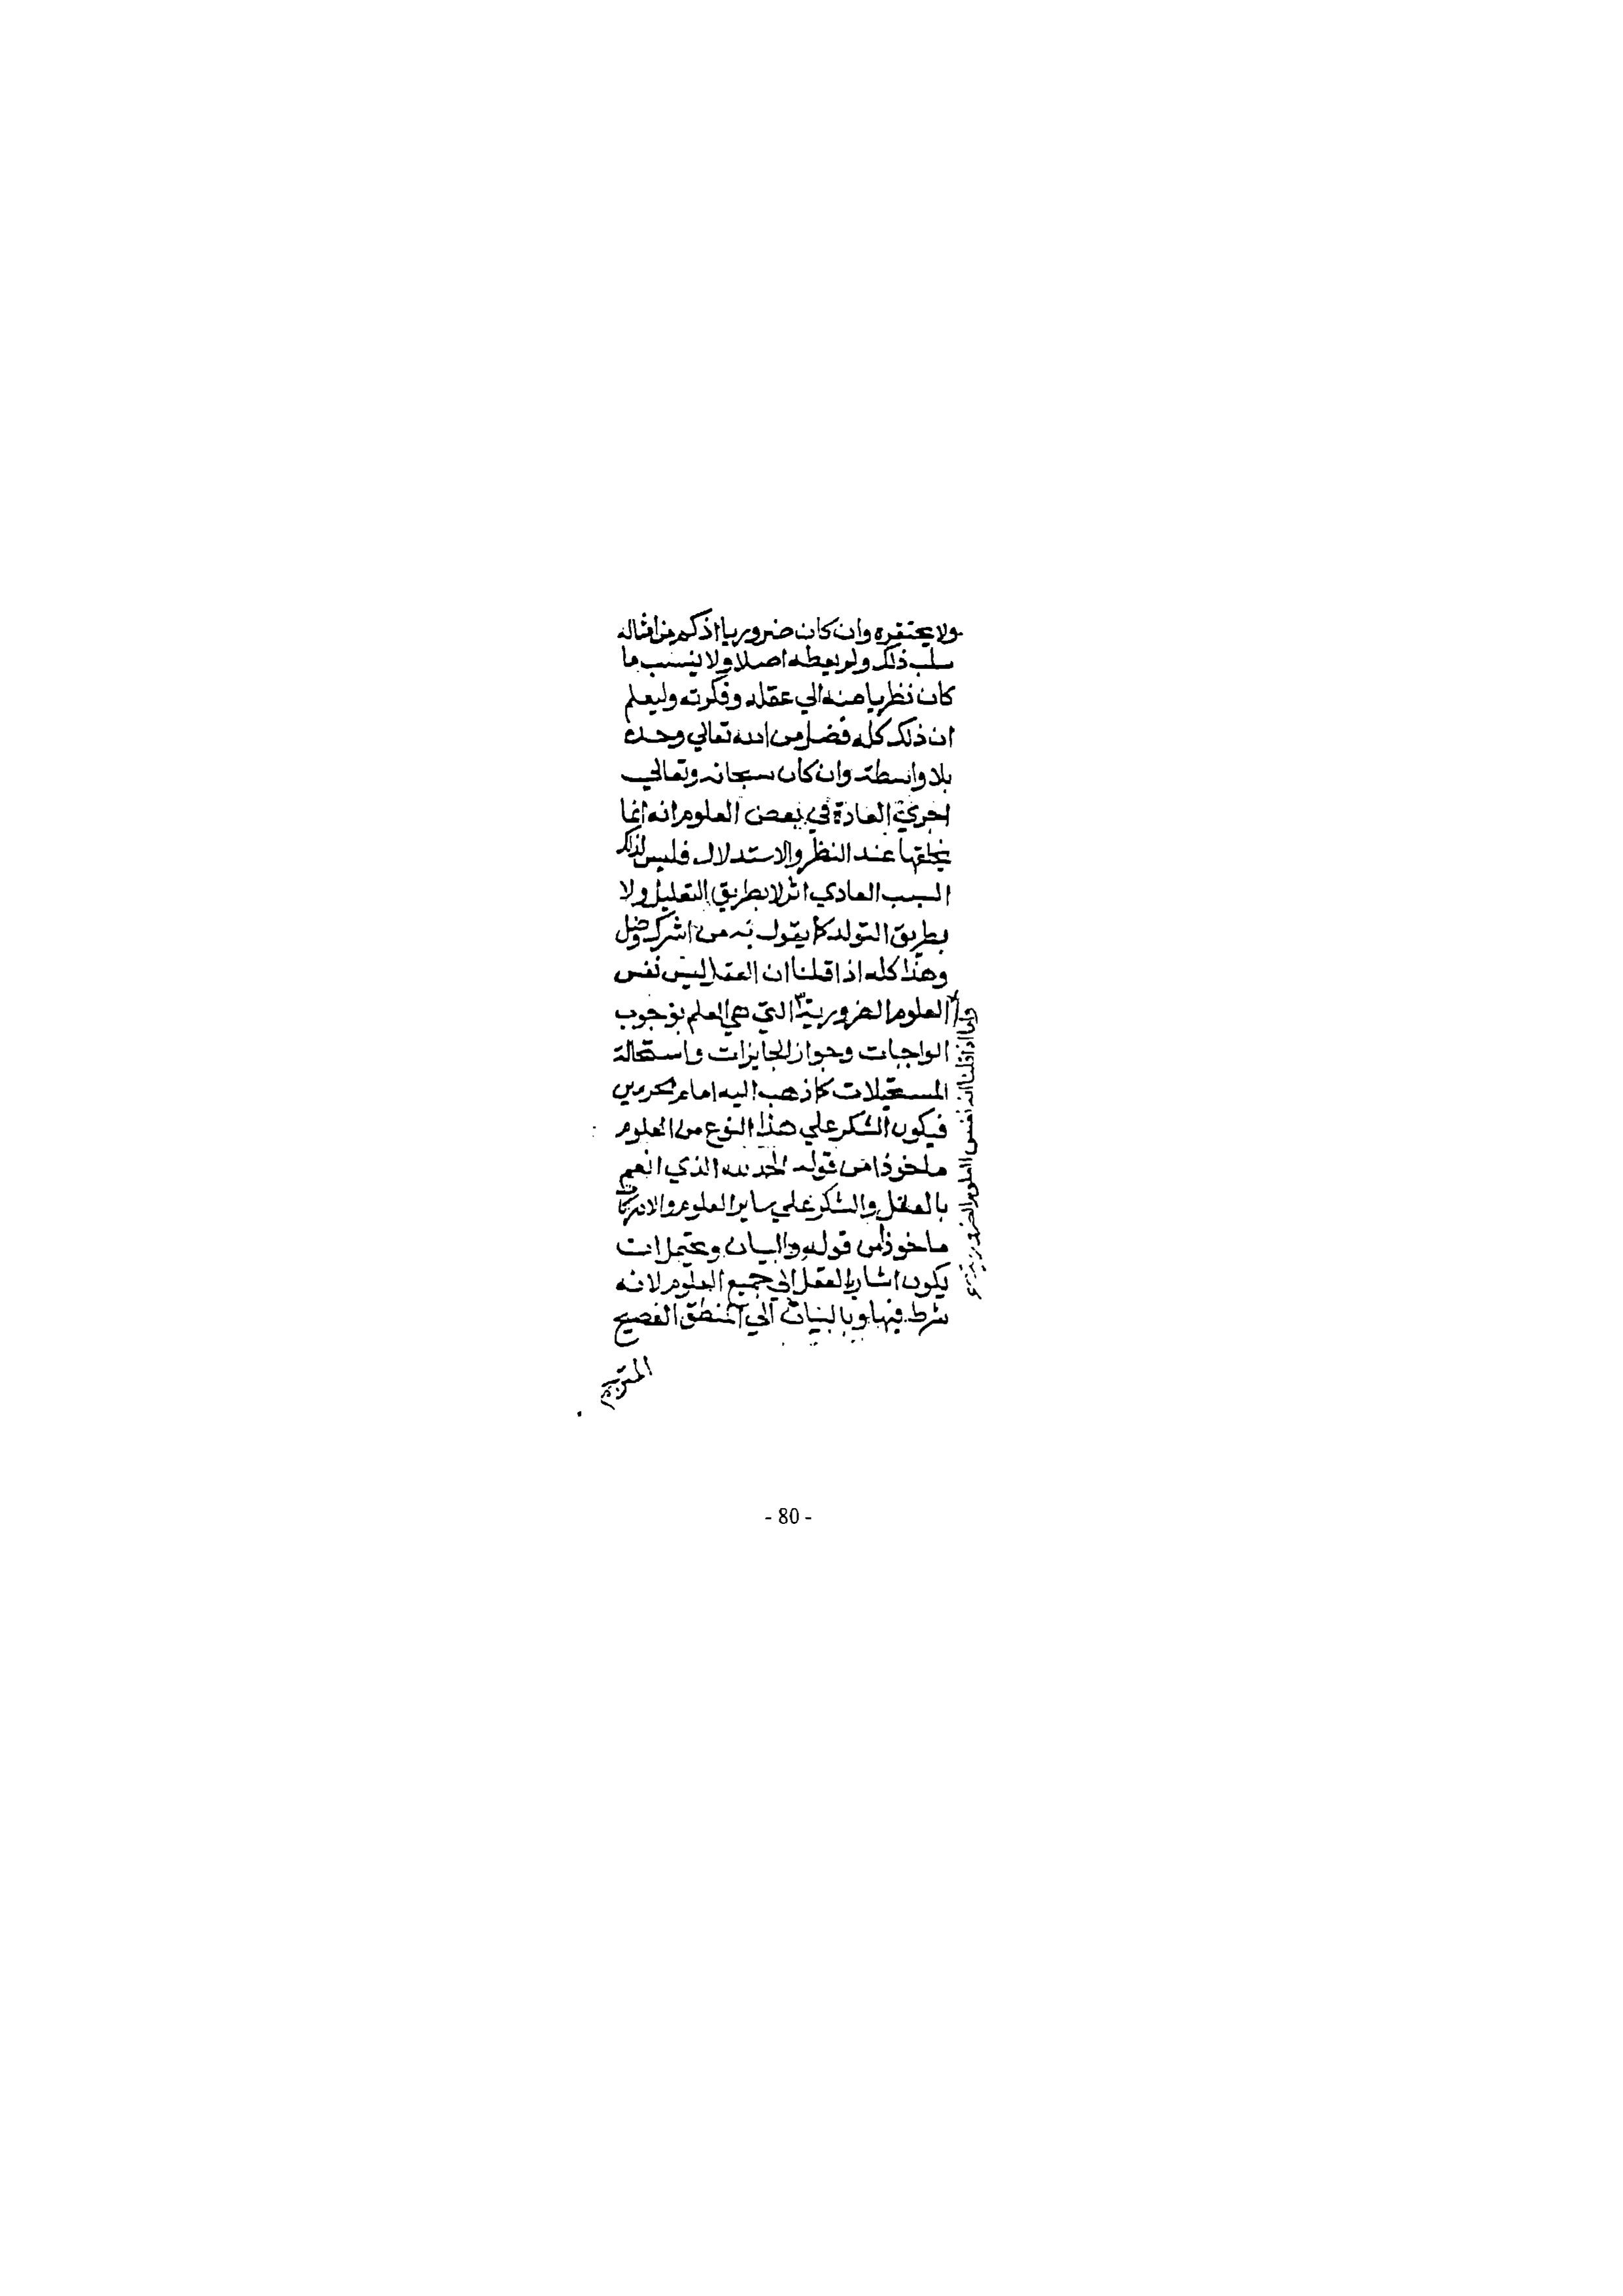 ولا يحتقره وان كان ضروريا اذ كم من امثاله
سلب ذلك ولم يعطه اصلا ولا ينسب ما
كان نظريا منه الي عقله وفكرته وليعلم
ان ذلك كله فضل من الله تعالي وحده
بلا واسطة وان كان سبحانه وتعالي
اجري العادة في بعض العلوم انه انما
يخلقها عند النظر والاستدلال فليس لذلك
السبب العادي اثر لا بطريق التعليل ولا
بطريق التولد كما يقول به من اشرك وضل
وهذا كله اذا قلنا ان العقل ليس نفس
العلوم الضرورية التي هي العلم بوجوب
الواجبات وجواز الجايزات واستحالة
المستحيلات كما ذهب اليه امام الحرمين
فيكون الشكر علي هذا النوع من العلوم
ماخوذا من قوله الحمد لله الذي انعم
بالعقل والشكر علي ساير العلوم والادراكات
ماخوذ من قوله والبيان ويحتمل ان
يكون اشار بالعقل الي جميع العلوم لانه
شرط فيها وبالبيان الي المنطق الفصيح
واما اذا قلنا انه نفس العلوم الضرورية
- 80 -